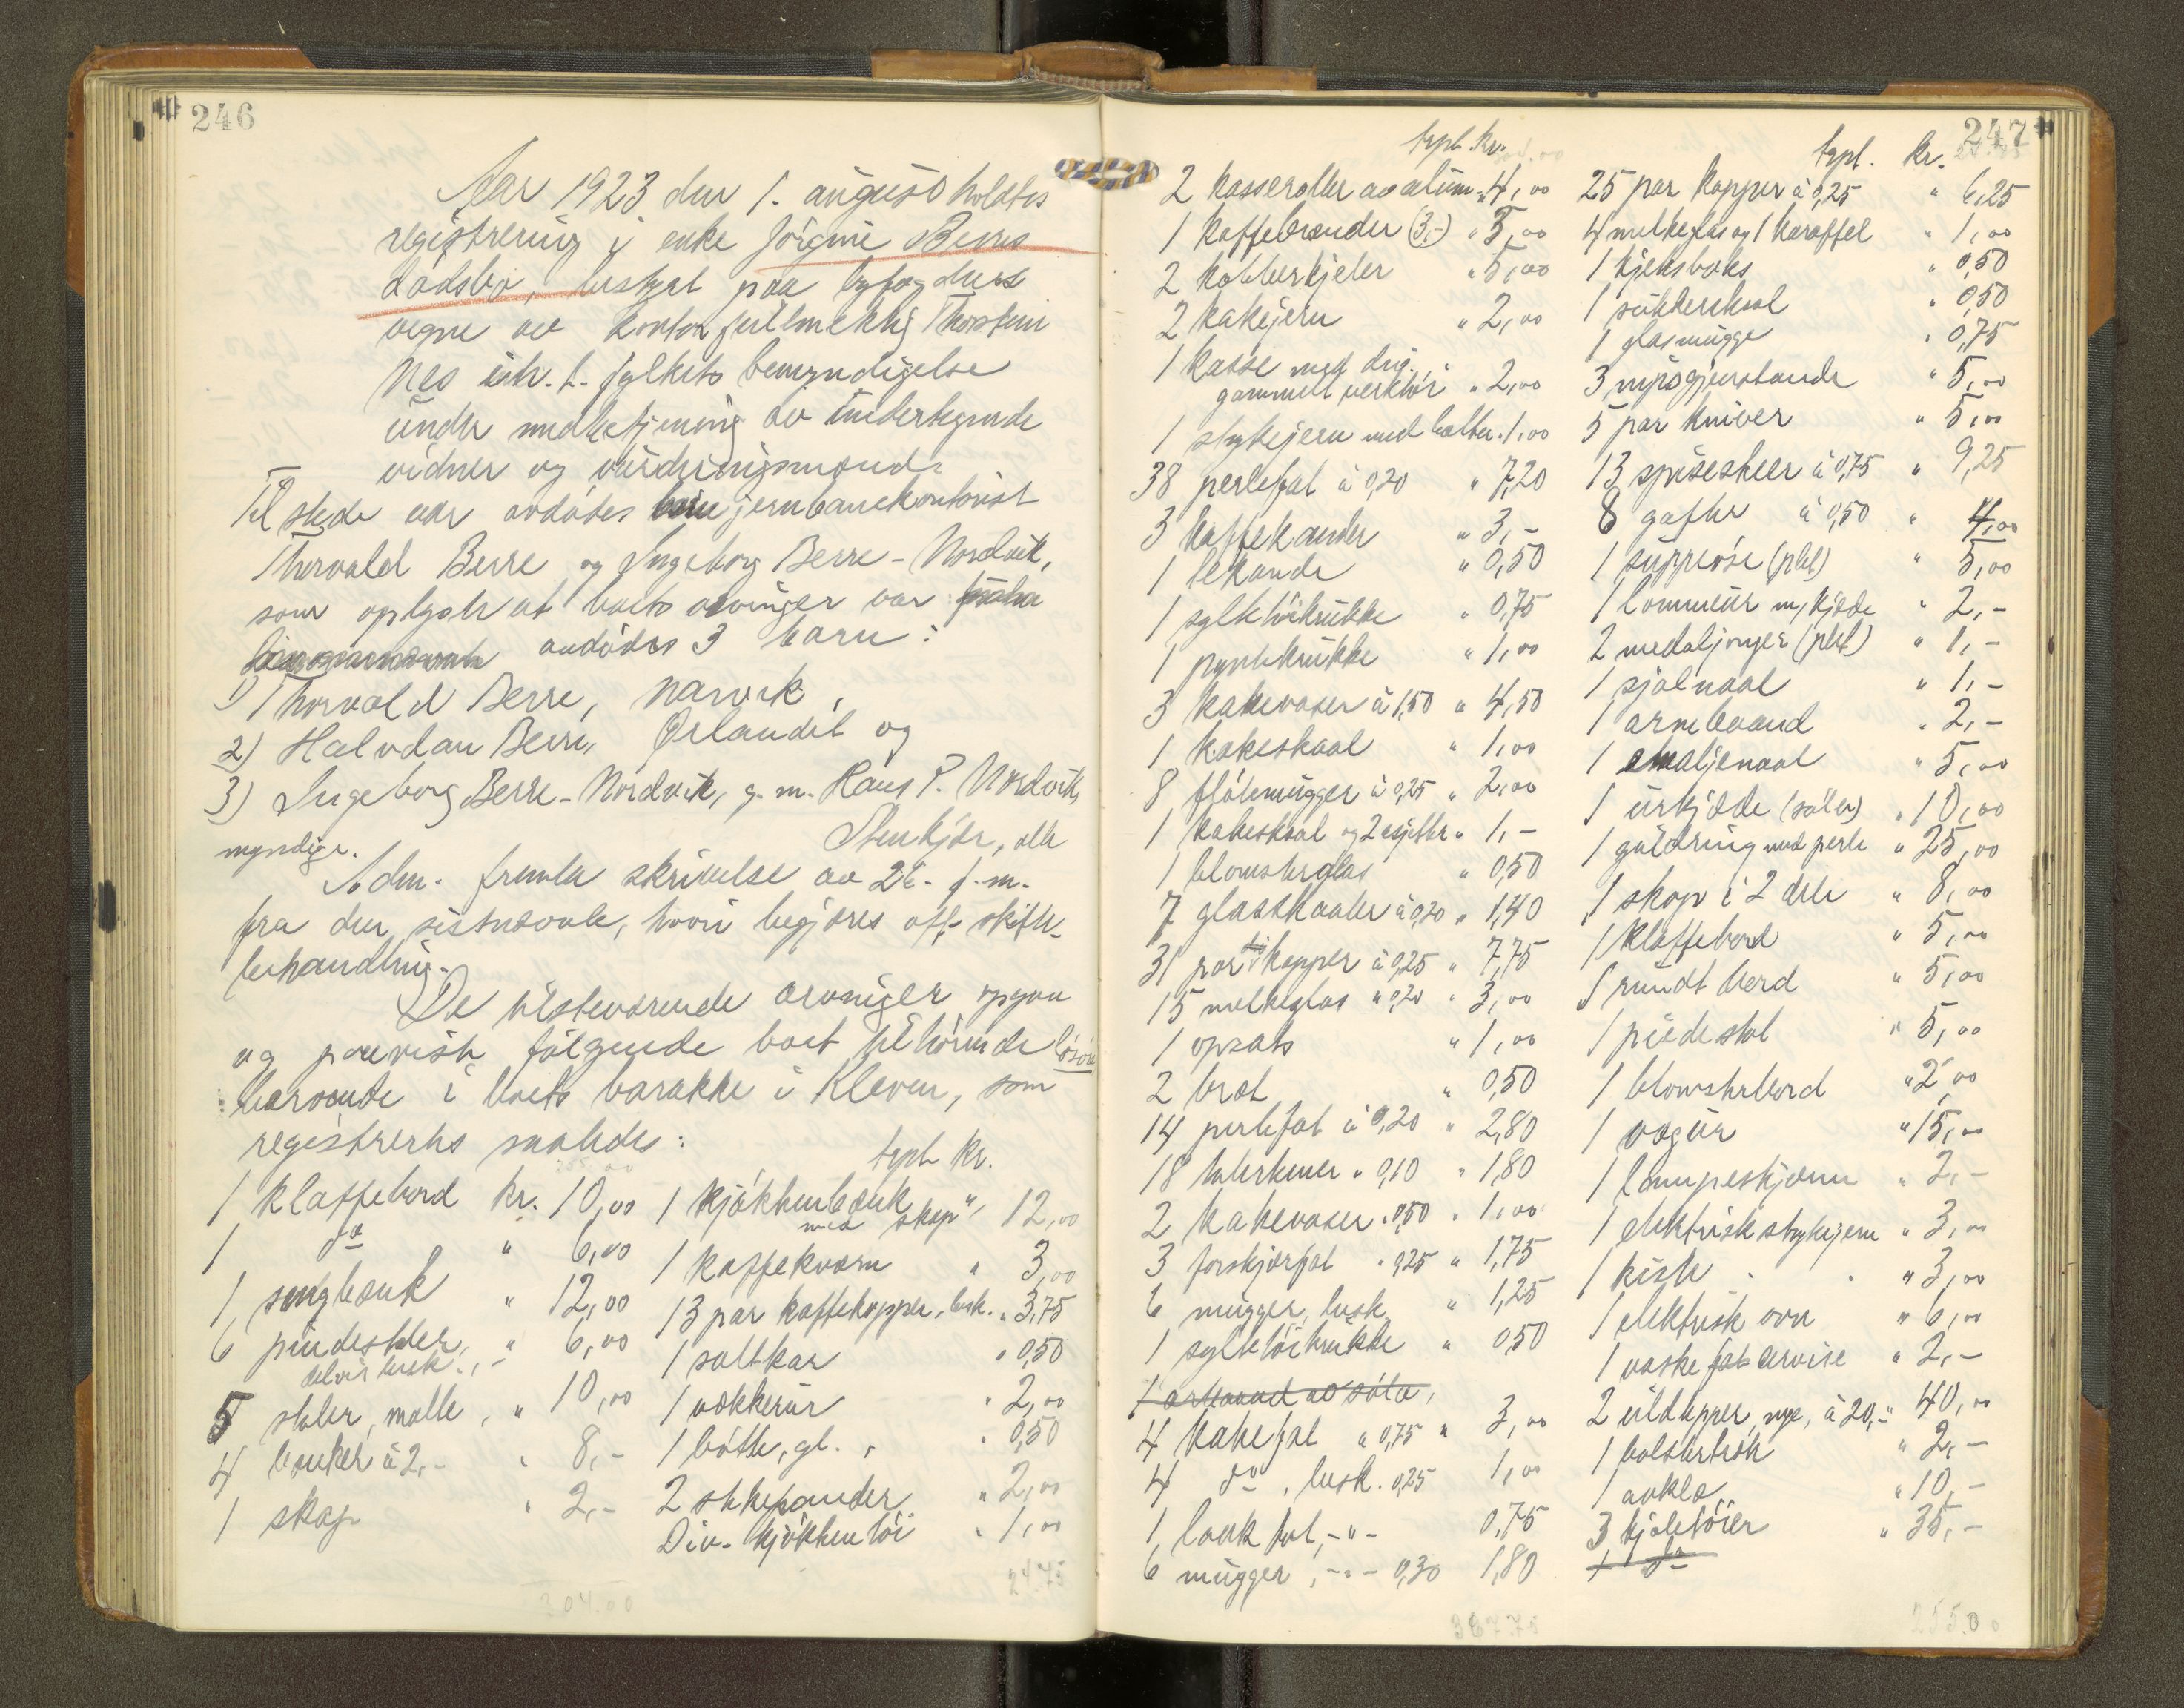 246
Aar 1923 den 1. august holdtes
registrering i enke Jörgine Berres
dödsbo, bestyrt paa byfogdens
vegne av kontorfullmektig Thorstein
Nes ih.t. fylkets bemyndigelse
under medbetjening av undertegnede
vidner og vurderingsmænd.
Tilstede var avdödes barn jernbanekontorist
Thorvald Berre og Ingeborg Berre-Nordvik,
som oplyste at boets arvinger var
avdödes 3 barn:
1) Thorvald Berre, Narvik,
2) Halvdan Berre, Ørlandet og
3) Ingeborg Berre-Nordvik, g. m. Hans P. Nordvik,
Stenkjær, alle
myndige.
Adm. fremla skrivelse av 26. f.m.
fra den sistnævnte, hvori begjæres off. skifte-
behandling.
De tilstevärende arvinger opgav
og paaviste fölgende boet tilhörende lösöre
beroende i boets barakke i Kleven, som
registrertes saaledes:
trpt. kr.
1 klaffebord kr. 10,00
1 do " 6,00
1 sengbænk " 12,00
6 pindestoler, " 6,00
delvis besk.
5 stoler, malte, " 10,00
4 bænker à 2,- " 8,-
1 skap " 2,-
1 kjökkenbænk
med skap " 12,00
1 kaffekværn " 3,00
13 par kaffekopper, besk. " 3,75
1 saltkar " 0,50
1 vækkerur " 2,00
1 bötte, gl. " 0,50
2 stekepander " 2,00
Div. kjökkentöi " 1,00
304.00
24.75
247
trpt. kr.
2 kasseroller av alum. " 4,00
1 kaffebrænder (3,-) " 3,00
2 kobberkjeler " 5,00
2 kakejern " 2,00
1 kasse med div.
gammelt verktöi " 2,00
1 strykejern med bolter " 1,00
38 perlefat à 0,20 " 7,20
3 kaffekander " 3,-
1 tekande " 0,50
1 syltetöikrukke " 0,75
1 pyntekrukke " 1,00
3 kakevaser à 1,50 " 4,50
1 kakeskaal " 1,00
8 flötemugger à 0,25 " 2,00
1 kakeskaal og 2 asjetter " 1,-
1 blomsterglas " 0,50
7 glasskaaler à 0,20 " 1,40
31 par kopper à 0,25 " 7,75
15 melkeglas " 0,20 " 3,00
1 opsats " 1,00
2 bræt " 0,50
14 perlefat à 0,20 " 2,80
18 tallerkener " 0,10 " 1,80
2 kakevaser " 0,50 " 1,00
3 forskjærfat " 0,25 " 1,75
6 mugger, besk. " 1,25
1 syltetöikrukke " 0,50
1 armbaand av sölv,
4 kakefat " 0,75 " 3,00
4 do , besk. 0,25 1,00
1 lauk fat, -"- 0,75
6 mugger, -"- 0,30 1,80
337.75
trpt. kr.
25 par kopper à 0,25 " 6,25
4 melkeglas og 1 karaffel " 1,00
1 kjeksboks " 0,50
1 sukkerskaal " 0,50
1 glasmugge " 0,75
3 nipsgjenstande " 5,00
5 par kniver " 5,00
13 spiseskeer à 0,75 " 9,25
8 gafler à 0,50 " 4,00
1 suppeöse (plet) " 5,00
1 lommeur m/kjede " 2,-
2 medaljonger (plet) " 1,-
1 sjalnaal " 1,-
1 armbaand " 2,-
1 emaljenaal " 5,00
1 urkjæde (sölv) " 10,00
1 guldring med perle " 25,00
1 skap i 2 dele " 8,00
1 klaffebord " 5,00
1 rundt bord " 5,00
1 piedestal " 5,00
1 blomsterbord " 2,00
1 vægur " 15,00
1 lampeskjærm " 2,-
1 elektrisk strykejern " 3,00
1 kiste " 3,00
1 elektrisk ovn " 6,00
1 vaskefatservise " 2,-
2 uldtepper, nye, à 20,- " 40,00
1 bolstertræk " 2,-
1 aaklæ " 10,-
3 kjoletöier " 35,-
1 do
255.00